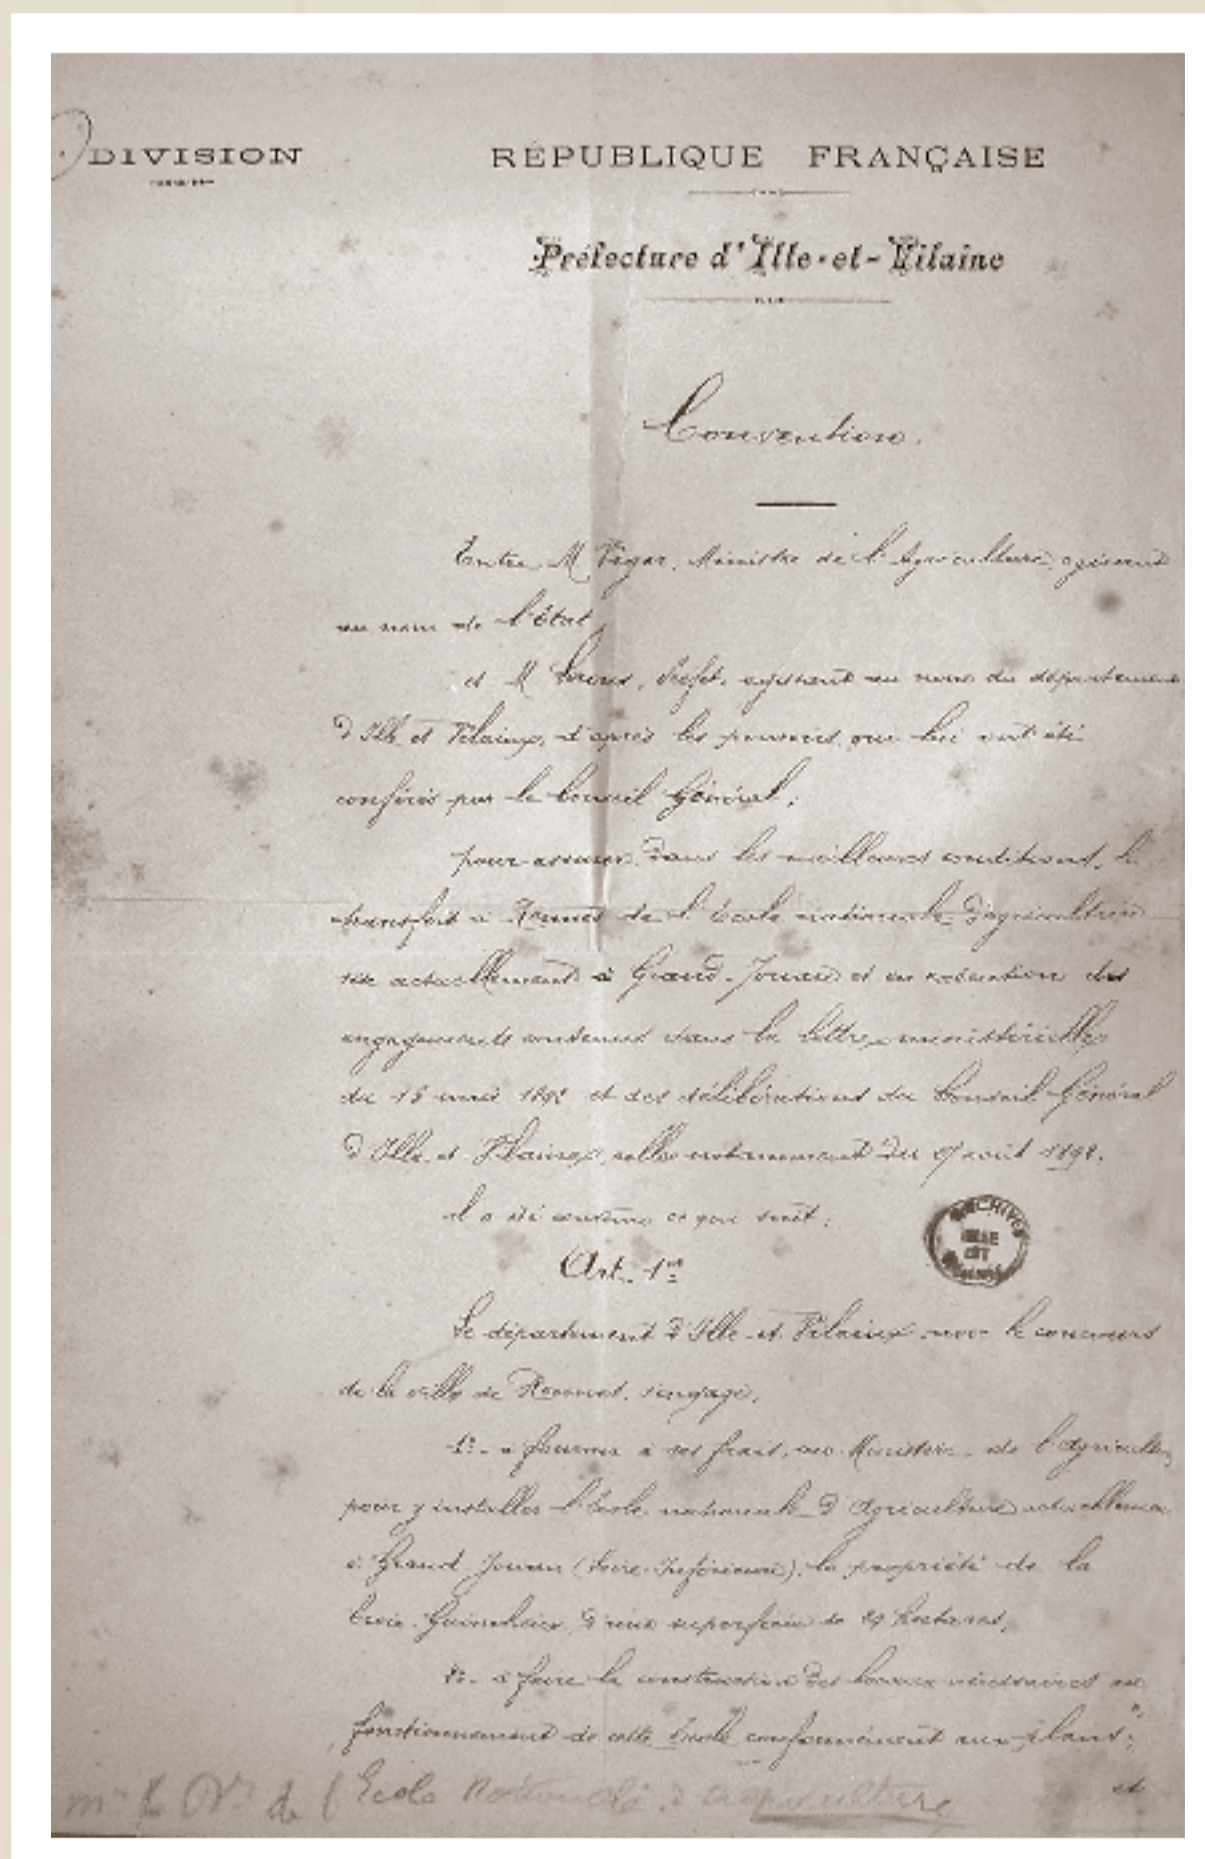 DIVISION
RÉPUBLIQUE FRANÇAISE
Préfecture d'Ille-et-Vilaine
Convention.
Entre M Viger, Ministre de l'Agriculture, agissant
au nom de l'État,
et M Leroux, Préfet, agissant au nom du département
d'Ille et Vilaine, d'après les pouvoirs qui lui ont été
conférés par le Conseil Général;
pour assurer, dans les meilleures conditions, le
transfert à Rennes de l'École nationale d'agriculture
sise actuellement à Grand-Jouan et en exécution des
engagements contenus dans la lettre ministérielle
du 18 1892 et des délibérations du Conseil Général
d'Ille et Vilaine, celle notamment du août
il a été convenu ce qui suit:
Art. 1er
Le département d'Ille et Vilaine avec le concours
de la ville de Rennes, s'engage,
1º- à fournir à ses frais, au Ministère de l'Agriculture,
pour y installer l'École nationale d'Agriculture actuellement
à Grand Jouan (Loire-Inférieure), la propriété de la
Croix d'une superficie de hectares,
2º- à faire la construction des locaux nécessaires au
fonctionnement de cette École conformément aux plans
et
de l'Ecole Nationale d'agriculture
ARCHIVES
ILLE
ET